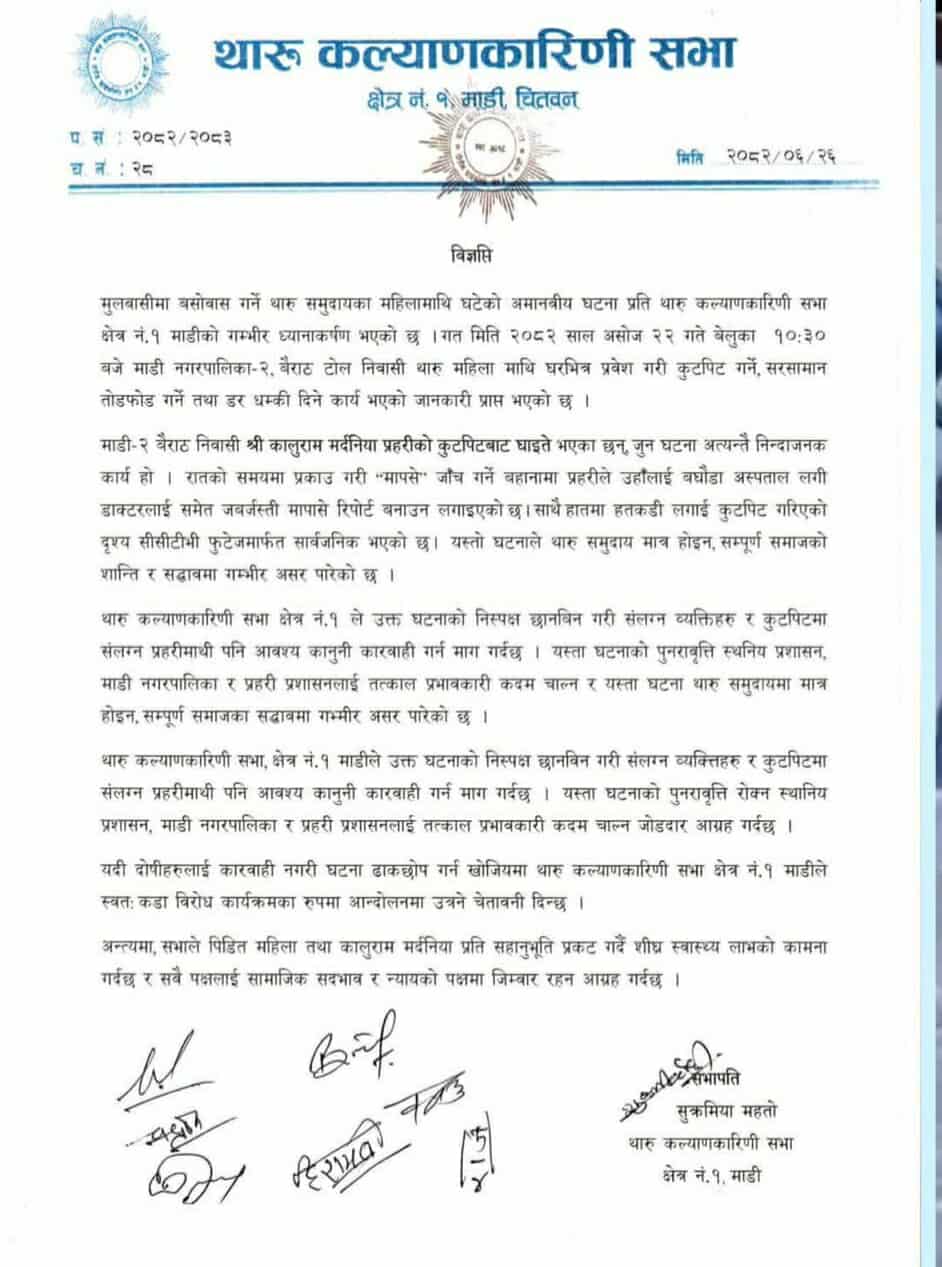 थारू कल्याणकारिणी सभा
क्षेत्र नं. १, माडी, चितवन
प. सं : २०८२/२०८३
च. नं. : २८
मिति २०८२/०६/२६
विज्ञप्ति
मुलबासीमा बसोबास गर्ने थारु समुदायका महिलामाथि घटेको अमानबीय घटना प्रति थारु कल्याणकारिणी सभा
क्षेत्र नं.१ माडीको गम्भीर ध्यानाकर्षण भएको छ । गत मिति २०८२ साल असोज २२ गते बेलुका १०:३०
बजे माडी नगरपालिका-२, बैराठ टोल निवासी थारु महिला माथि घरभित्र प्रवेश गरी कुटपिट गर्ने, सरसामान
तोडफोड गर्ने तथा डर धम्की दिने कार्य भएको जानकारी प्राप्त भएको छ ।
माडी-२ बैराठ निवासी श्री कालुराम मर्दनिया प्रहरीको कुटपिटबाट घाइते भएका छन्, जुन घटना अत्यन्तै निन्दाजनक
कार्य हो । रातको समयमा प्रकाउ गरी "मापसे" जाँच गर्ने बहानामा प्रहरीले उहाँलाई बघौडा अस्पताल लगी
डाक्टरलाई समेत जबर्जस्ती मापासे रिपोर्ट बनाउन लगाइएको छ। साथै हातमा हतकडी लगाई कुटपिट गरिएको
दृश्य सीसीटीभी फुटेजमार्फत सार्वजनिक भएको छ। यस्तो घटनाले थारु समुदाय मात्र होइन, सम्पूर्ण समाजको
शान्ति र सद्भावमा गम्भीर असर पारेको छ ।
थारु कल्याणकारिणी सभा क्षेत्र नं.१ ले उक्त घटनाको निस्पक्ष छानबिन गरी संलग्न व्यक्तिहरु र कुटपिटमा
संलग्न प्रहरीमाथी पनि आवश्य कानुनी कारवाही गर्न माग गर्दछ । यस्ता घटनाको पुनरावृत्ति स्थनिय प्रशासन,
माडी नगरपालिका र प्रहरी प्रशासनलाई तत्काल प्रभावकारी कदम चाल्न र यस्ता घटना थारु समुदायमा मात्र
होइन, सम्पूर्ण समाजका सद्भावमा गम्भीर असर पारेको छ ।
थारु कल्याणकारिणी सभा, क्षेत्र नं.१ माडीले उक्त घटनाको निस्पक्ष छानविन गरी संलग्न व्यक्तिहरु र कुटपिटमा
संलग्न प्रहरीमाथी पनि आवश्य कानुनी कारवाही गर्न माग गर्दछ । यस्ता घटनाको पुनरावृत्ति रोक्न स्थानिय
प्रशासन, माडी नगरपालिका र प्रहरी प्रशासनलाई तत्काल प्रभावकारी कदम चाल्न जोडदार आग्रह गर्दछ ।
यदी दोषीहरुलाई कारवाही नगरी घटना ढाकछोप गर्न खोजियमा थारु कल्याणकारिणी सभा क्षेत्र नं.१ माडीले
स्वत: कडा विरोध कार्यक्रमका रुपमा आन्दोलनमा उत्रने चेतावनी दिन्छ ।
अन्त्यमा, सभाले पिडित महिला तथा कालुराम मर्दनिया प्रति सहानुभूति प्रकट गर्दै शीघ्र स्वास्थ्य लाभको कामना
गर्दछ र सबै पक्षलाई सामाजिक सदभाव र न्यायको पक्षमा जिम्वार रहन आग्रह गर्दछ ।
सभापति
सुक्रमिया महतो
थारु कल्याणकारिणी सभा
क्षेत्र नं.१, माडी